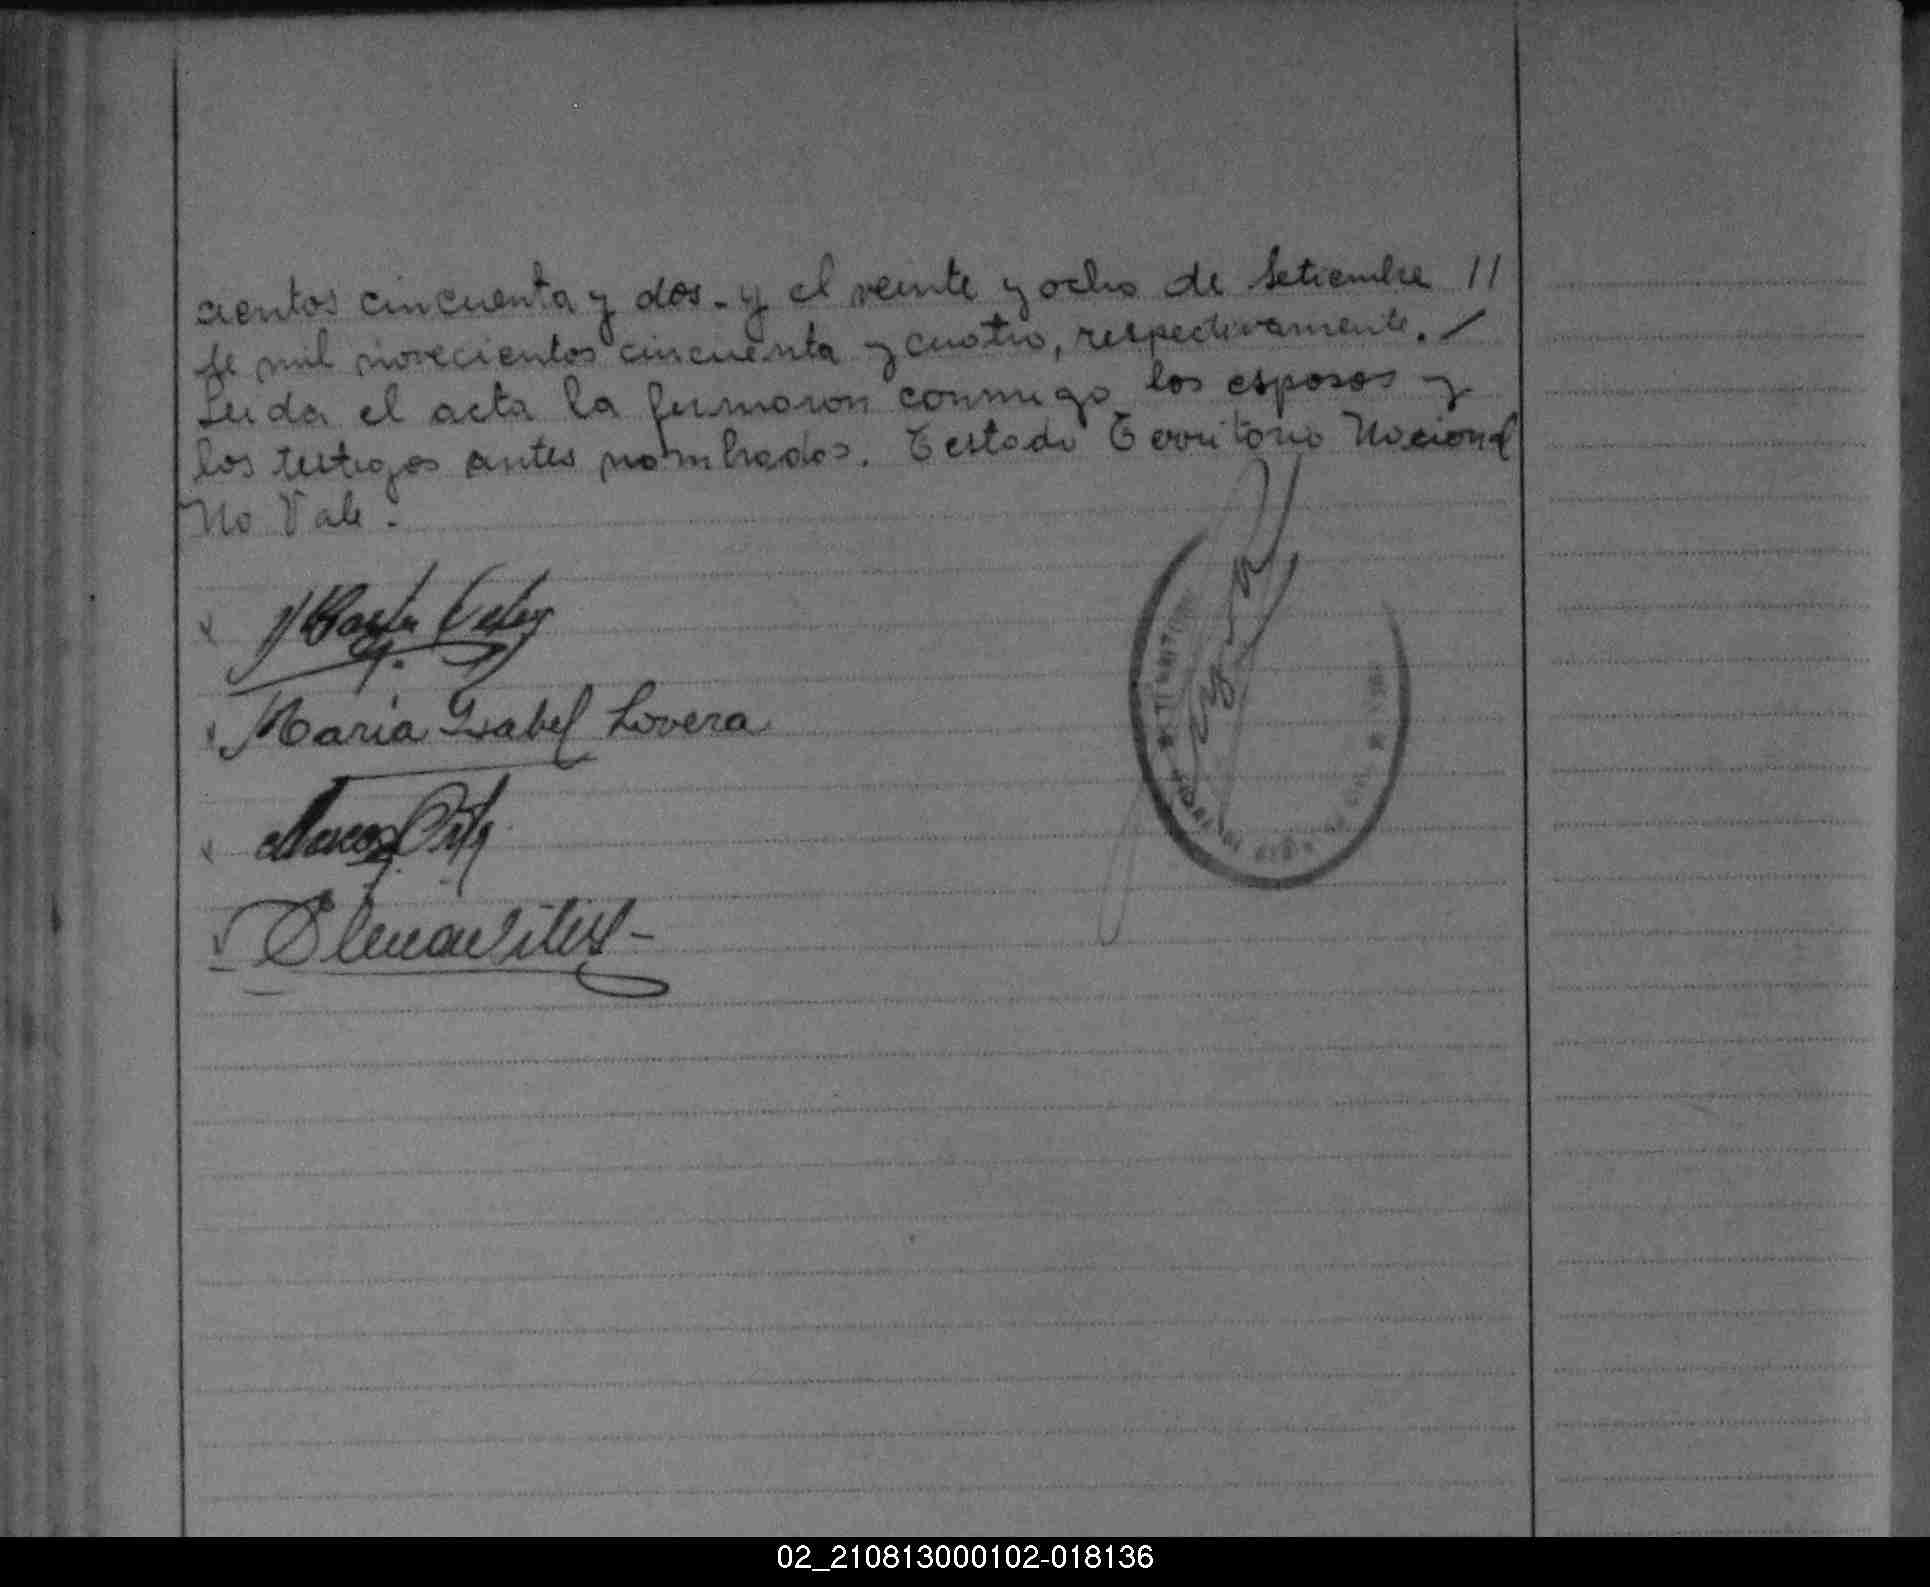 cientos cincuenta y dos - y el veinte y ocho de Setiembre //
de mil novecientos cincuenta y cuatro, respectivamente. /
Leida el acta la firmaron conmigo los esposos y
los testigos antes nombrados. Testado Territorio Nacional
No Vale.-
Maria Isabel Lovera
02_210813000102-018136